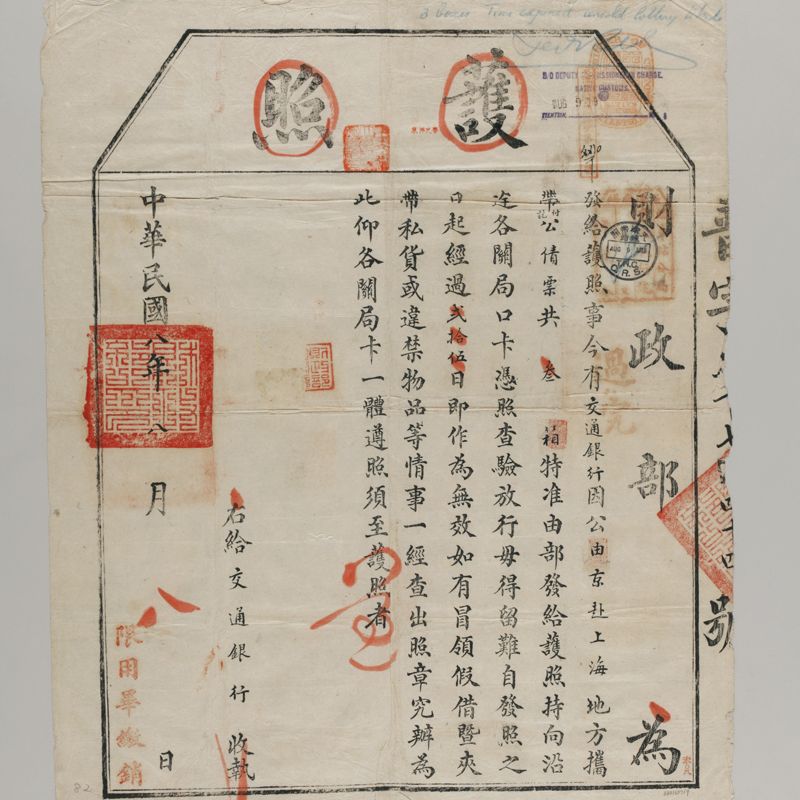 3 boxes Time expired unsold lottery
B/O DEPUTY COMMISSIONER IN CHARGE.
NATIVE CUSTOMS.
AUG 9 19
TIENTSIN.
護照
財政部 為
發給護照事今有交通銀行因公由京赴上海地方攜
帶公債票共叁箱特准由部發給護照持向沿
途各關局口卡憑照查驗放行毋得留難自發照之
日起經過貳拾伍日即作為無效如有冒領假借暨夾
帶私貨或違禁物品等情事一經查出照章究辦為
此仰各關局卡一體遵照須至護照者
右給交通銀行 收執
中華民國八年八月八日
限用畢繳銷
過完
號
82